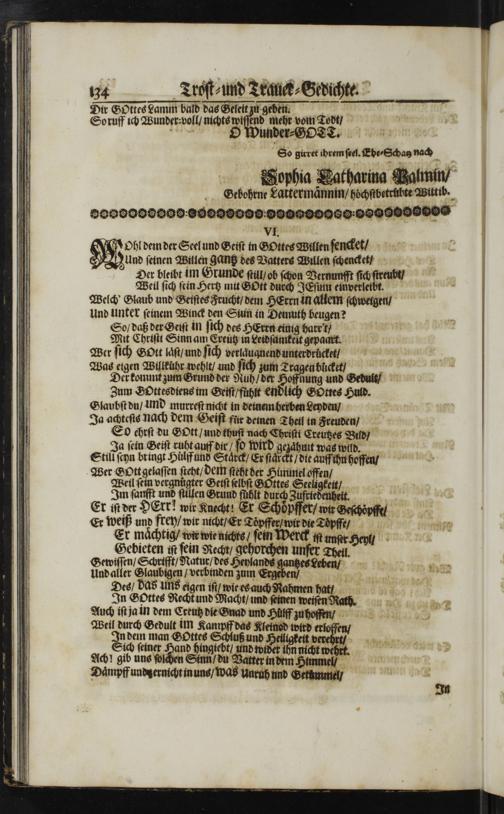 134 Trost- und Traur-Gedichte.
Dir GOttes Lamm bald das Geleit zu geben.
So ruff ich Wunder-voll/ nichts wissend mehr vom Todt/
O Wunder-GOTT.
So girret ihrem seel. Ehe-Schatz nach
Sophia Catharina Palmin/
Gebohrne Lattermännin/ höchstbetrübte Wittib.
VI.
WOhl dem der Seel und Geist in GOttes Willen sencket/
Und seinen Willen gantz des Vatters Willen schencket/
Der bleibt im Grunde still/ ob schon Vernunfft sich streubt/
Weil sich sein Hertz mit GOtt durch JEsum einverleibt.
Welch' Glaub und Geistes Frucht/ dem HErrn in allem schweigen/
Und unter seinem Winck den Sinn in Demuth beugen?
So/ daß der Geist in sich des HErren einig harr't/
Mit Christi Sinn am Creutz in Leidsamkeit gepaart.
Wer sich GOtt läst/ und sich verläugnend unterdrücket/
Was eigen Willkühr wehlt/ und sich zum Tragen bücket/
Der kommt zum Grund der Ruh/ der Hoffnung und Gedult/
Zum GOttesdiens im Geist/ fühlt endlich GOttes Huld.
Glaubst du/ und murrest nicht in deinem herben Leyden/
Ja achtests nach dem Geist für deinen Theil in Freuden/
So ehrst du GOtt/ und thust nach Christi Creutzes Bild/
Ja sein Geist ruht auf dir/ so wird gezähmt was wild.
Still seyn bringt Hülff und Stärck/ Er stärckt/ die auff ihn hoffen/
Wer GOtt gelassen steht/ dem steht der Himmel offen/
Weil sein vergnügter Geist selbst GOttes Seeligkeit/
Im sanfft und stillen Grund fühlt durch Zufriedenheit.
Er ist der HErr! wir Knecht! Er Schöpffer/ wir Geschöpffe/
Er weiß und frey/ wir nicht/ Er Töpffer/ wir die Töpffe/
Er mächtig/ wir wie nichts/ sein Werck ist unser Heyl/
Gebieten ist sein Recht/ gehorchen unser Theil.
Gewissen/ Schrifft/ Natur/ des Heylands gantzes Leben/
Und aller Glaubigen/ verbinden zum Ergeben/
Des/ das uns eigen ist/ wie es auch Nahmen hat/
In GOttes Recht und Macht/ und seinen weisen Rath.
Auch ist ja in dem Creutz die Gnad und Hülff zu hoffen/
Weil durch Gedult im Kampff das Kleinod wird erloffen/
In dem man GOttes Schluß und Heiligkeit verehrt/
Sich seiner Hand hingiebt/ und wider ihn nicht wehrt.
Ach! gib uns solchen Sinn/ du Vatter in dem Himmel/
Dämpff und zernicht in uns/ was Unruh und Getümmel/
In